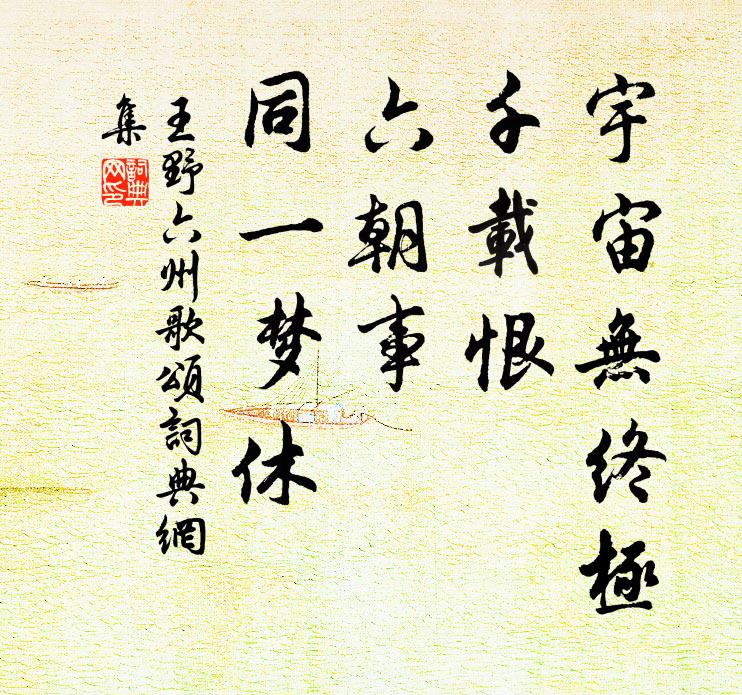 宇宙無終極
千載恨
六朝事
同一梦休
王野六州歌頌詞典網
集
詞典
网印